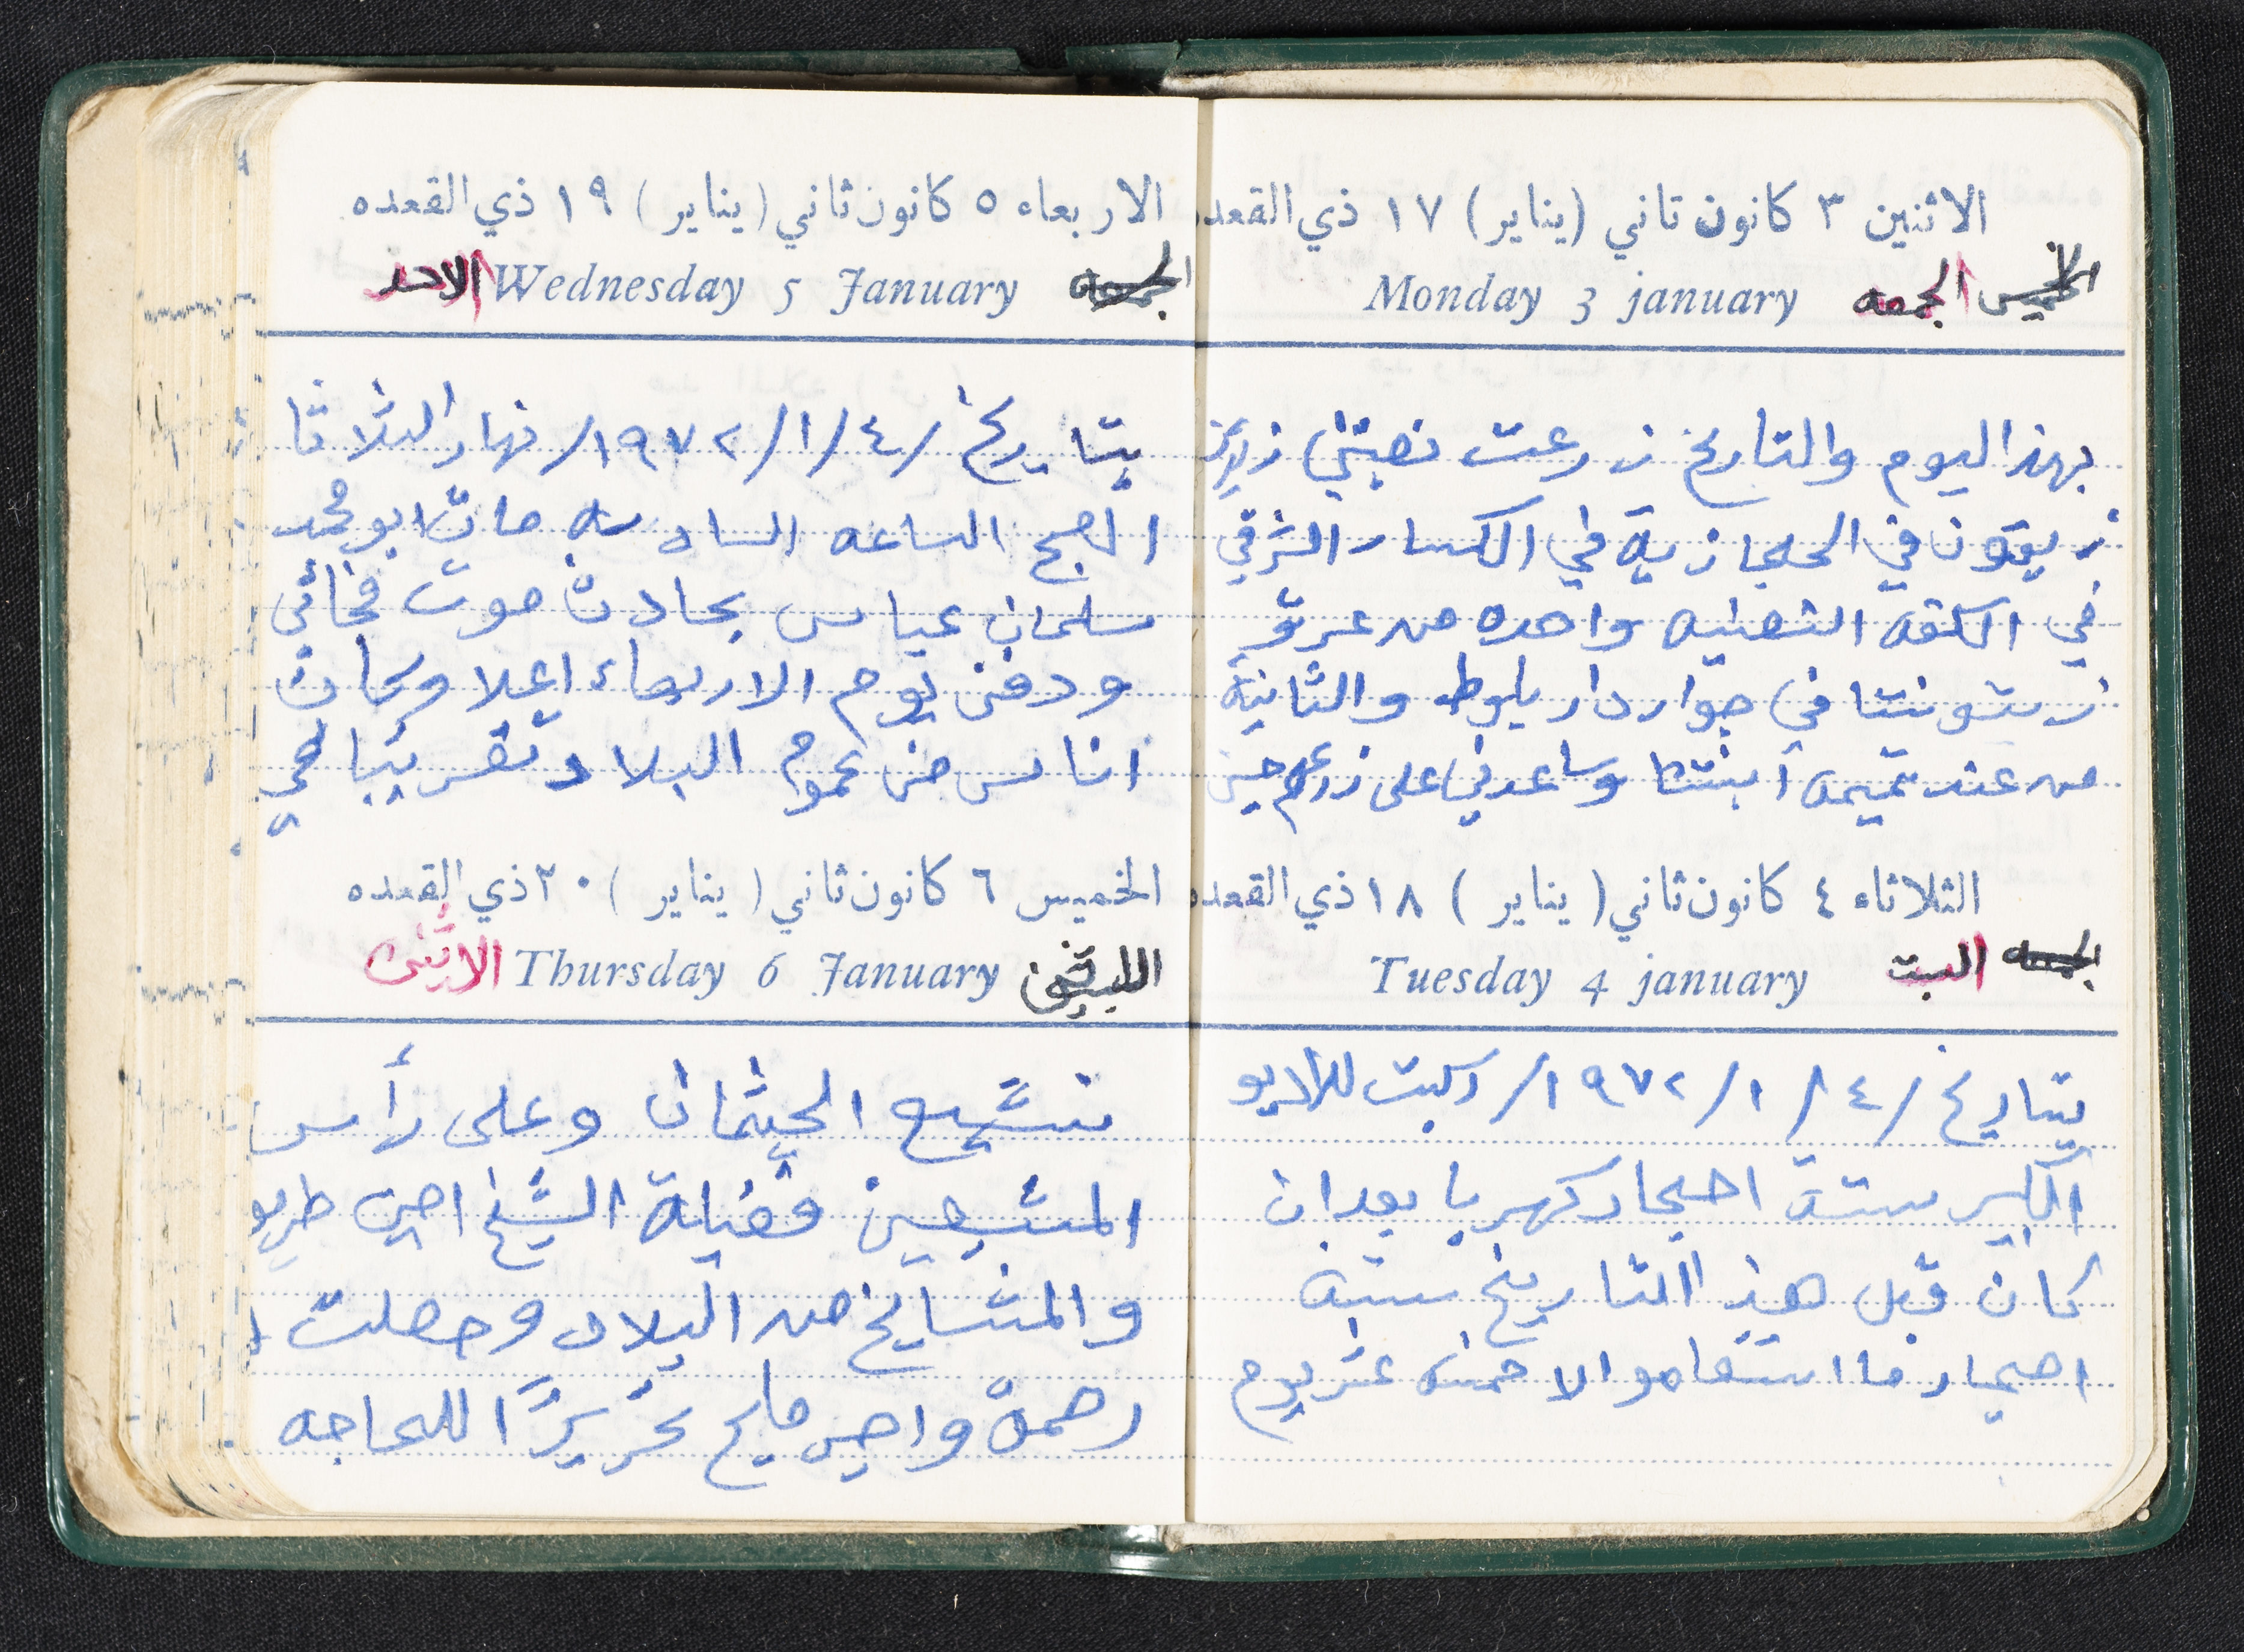 الاثنين ٣ كانون تاني (يناير) ١٧ ذي القعده
الخميس الجمعه Monday 3 january
بهذا اليوم والتاريخ زرعت نصبتي زيتز
زيعتون في الحجازية في الكسار الشرقي
في الكتفه النصبيه واحده من عرق
زيتونتنا في جوار دار بلوط والثانية
من عند تميمه ابنتنا وساعدني على زرعهم حين
الثلاثاء ٤ كانون ثاني (يناير) ١٨ ذي القعده
الجمعه السبت Tuesday 4 january
بتاريخ /٤/١/١٩٧٢/ ركبت للراديو
الكبير ستة احجار كهربا بعد ان
كان قبل هذا التاريخ ستة
احجار ما استقامو الا خمسة عشر يوم
الاربعاء ٥ كانون ثاني (يناير) ١٩ ذي القعده
الجمعه Wednesday 5 January الاحد
بتاريخ /٤/١/١٩٧٢/ نهار الثلاثا
الصبح الساعه السادسه مات ابو محمد
سلمان عباس بحادث موت فجائي
ودفن يوم الاربعاء اعلا وكان
اناس من عموم البلاد تقريبا لحي
الخميس ٦ كانون ثاني (يناير) ٢٠ ذي القعده
Thursday 6 January الاثنين
تشيع الجثمان وعلى رأس
المشيعين فضيلة الشيخ امين طريف
والمشايخ من البلاد وحصلت
رحمة واجر مليح تحريرًا للحاجه